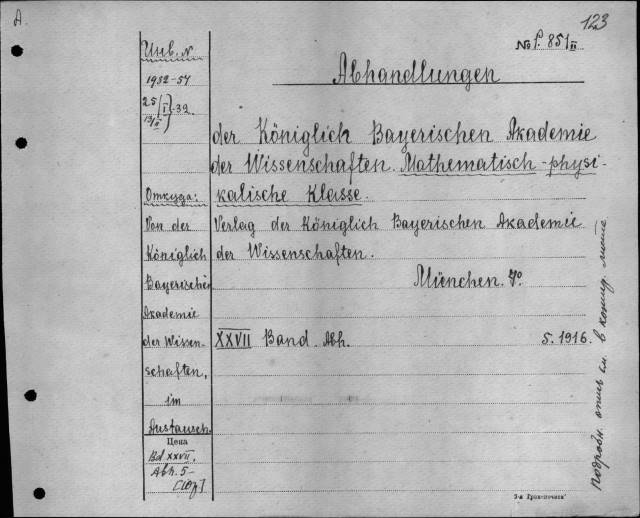 A.
123
№ P. 851 II
Инв. №
1932-57
25/I
13/II -32.
Abhandlungen
der Königlich Bayerischen Akademie
der Wissenschaften. Mathematisch-physi-
kalische Klasse.
Откуда:
Von der
Königlich
Bayerischen
Akademie
der Wissen-
schaften,
im
Austausch.
Verlag der Königlich Bayerischen Akademie
der Wissenschaften.
München. 4º
XXVII Band. Abh. 5. 1916.
Цена
Bd XXVII.
Abh. 5-
подробн. опись см. в